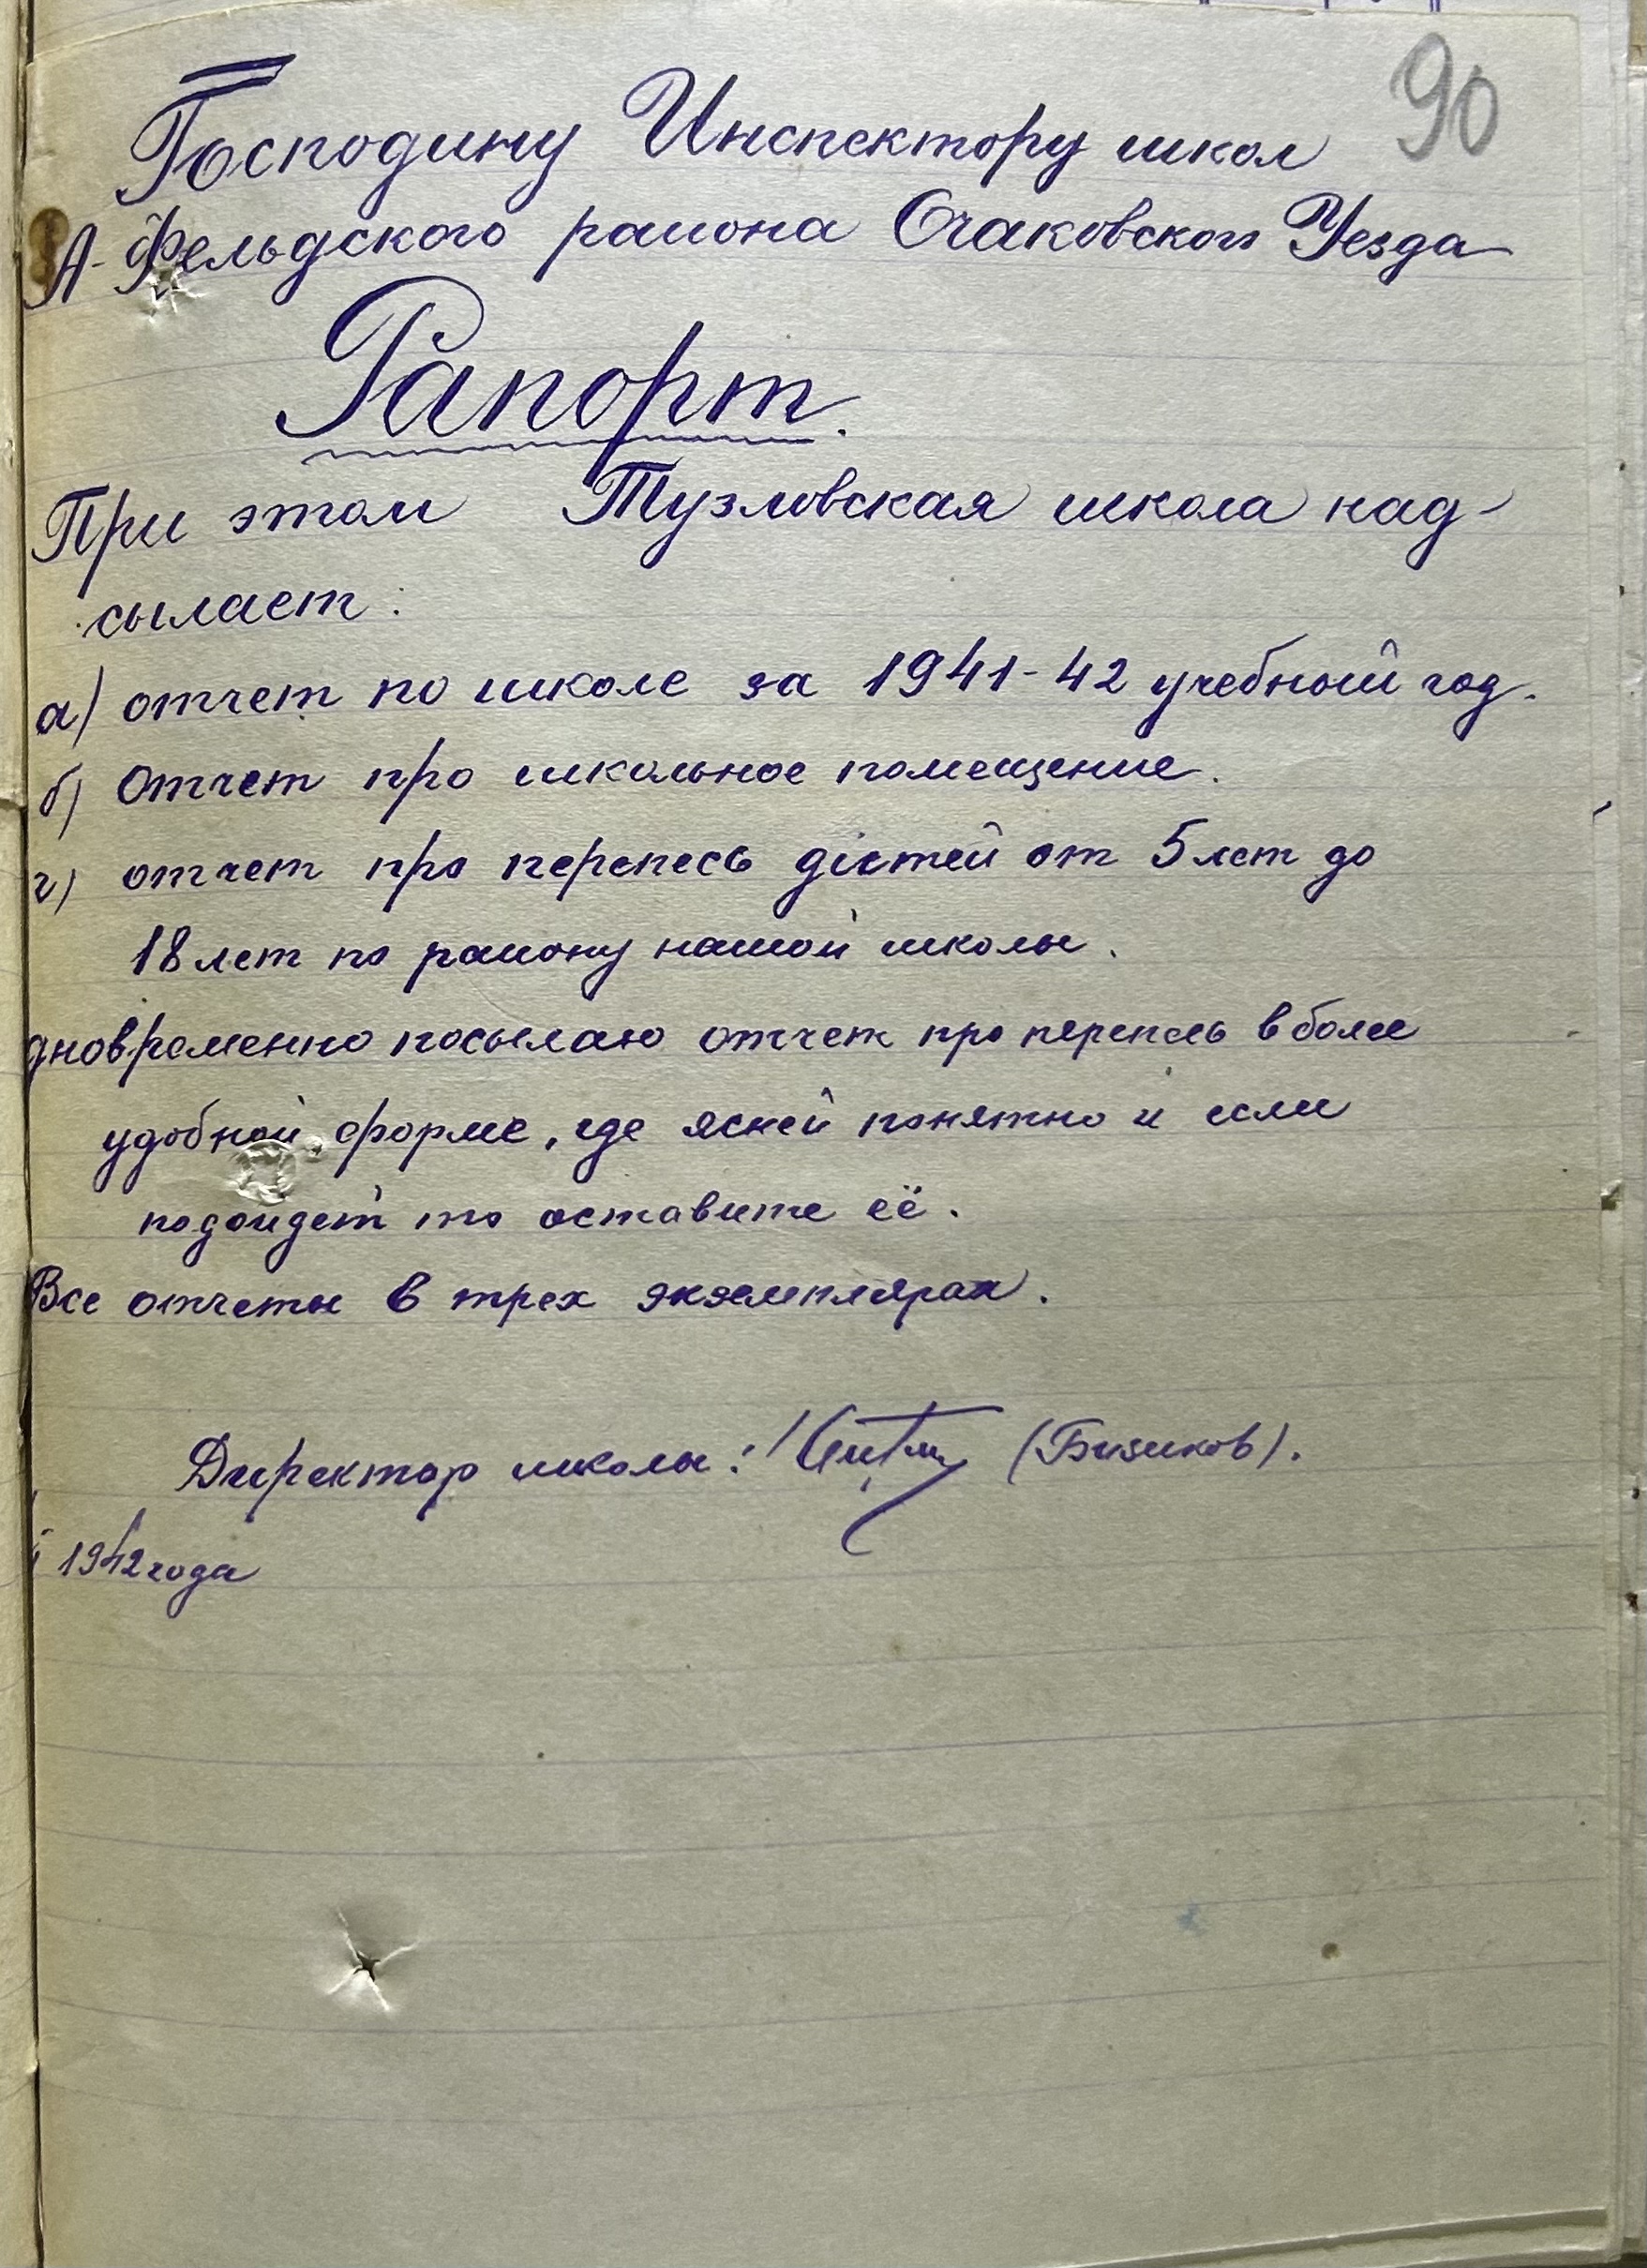 90
Господину Инспектору школ
А-Фельдского района Очаковского Уезда
Рапорт.
При этом Тузловская школа над-
сылает:
а) отчет по школе за 1941-42 учебный год.
б) отчет про школьное помещение.
г) отчет про перепесь дiетей от 5 лет до
18 лет по району нашой школы.
дновременно посылаю отчет про перепесь в более
удобной форме, где ясней понятно и если
подойдет то оставите её.
Все отчеты в трех экземплярах.
Директор школы: (Бизиков).
1942 года